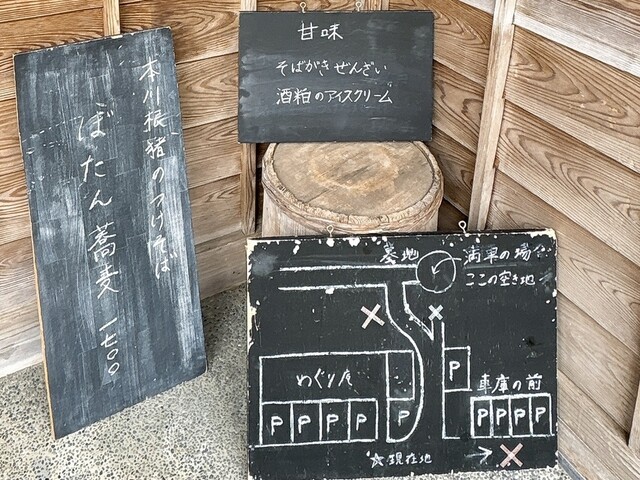 本川根猪のつけそば
ぼたん蕎麦 一七〇〇
甘味
そばがきぜんざい
酒粕のアイスクリーム
墓地
満車の場合
ここの空き地
めぐり庵
P P P P
P
P
車庫の前
P P P P
☆現在地